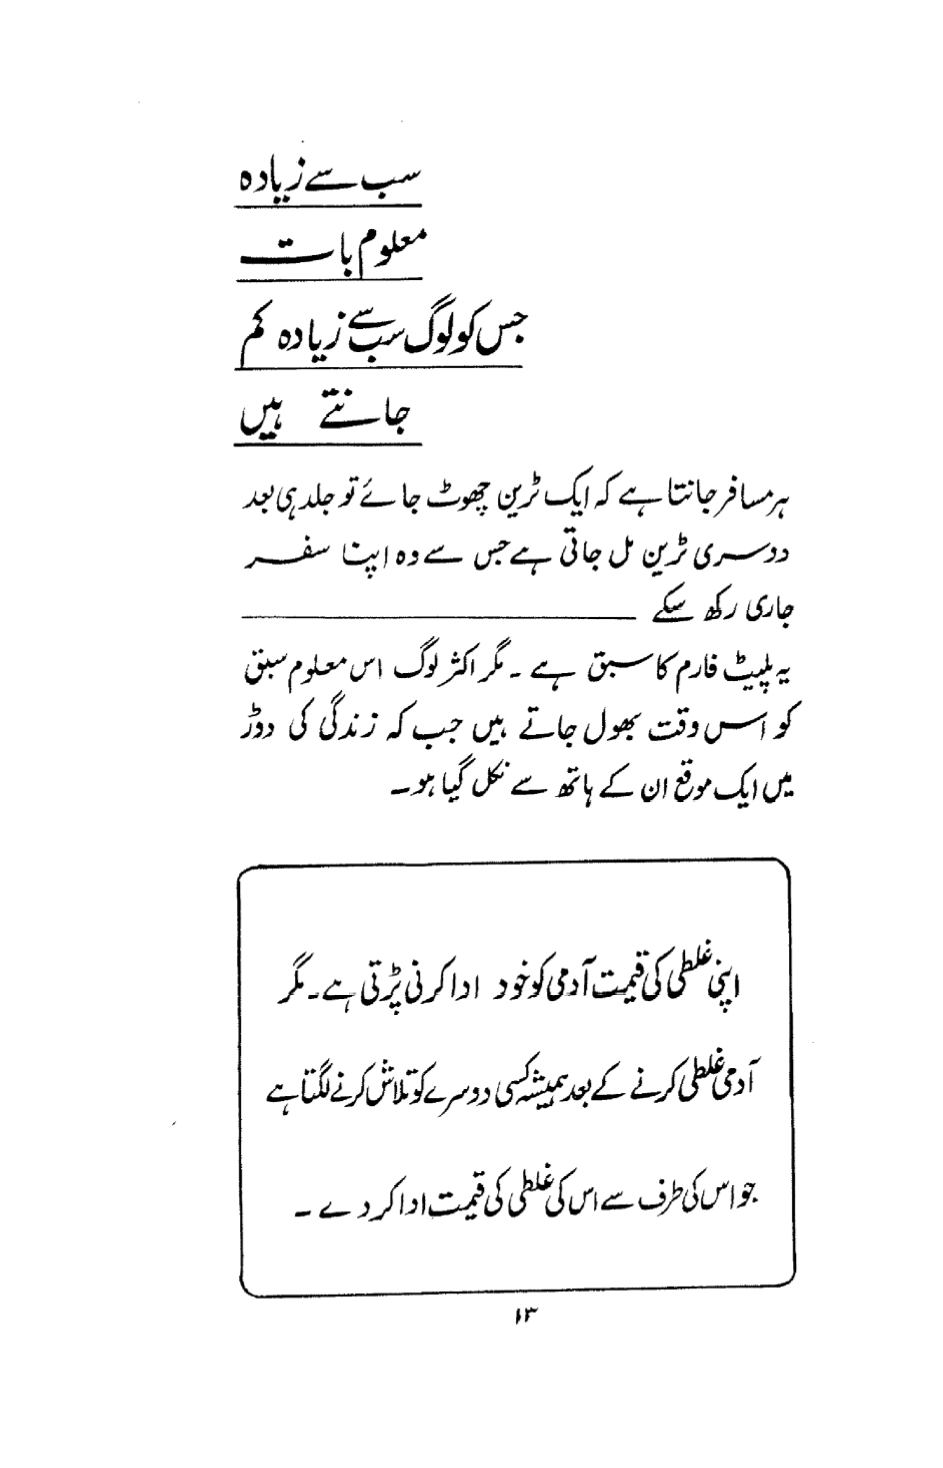 سب سے زیادہ
معلوم بات
جس کو لوگ سب سے زیادہ کم
جانتے ہیں
ہر مسافر جانتا ہے کہ ایک ٹرین چھوٹ جائے تو جلد ہی بعد
دوسری ٹرین مل جاتی ہے جس سے وہ اپنا سفر
جاری رکھ سکے
یہ پلیٹ فارم کا سبق ہے ۔ مگر اکثر لوگ اس معلوم سبق
کو اس وقت بھول جاتے ہیں جب کہ زندگی کی دوڑ
میں ایک موقع ان کے ہاتھ سے نکل گیا ہو۔
اپنی غلطی کی قیمت آدمی کو خود ادا کرنی پڑتی ہے۔ مگر
آدمی غلطی کرنے کے بعد ہمیشہ کسی دوسرے کو تلاش کرنے لگتا ہے
جو اس کی طرف سے اس کی غلطی کی قیمت ادا کر دے ۔
۱۳